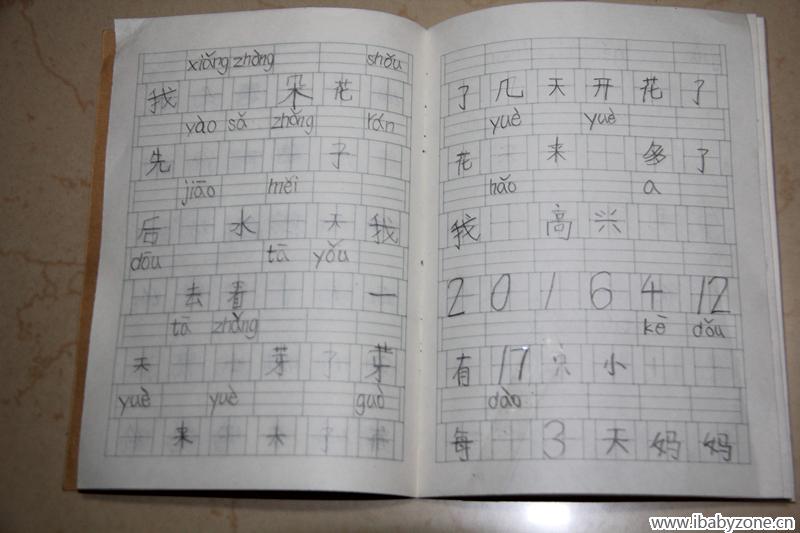 xiǎng zhòng shǒu
我 朵 花
yào sǎ zhǒng rán
先 子
jiāo měi
后 水 天 我
dōu tā yǒu
去 看 一
tā zhǎng
天 芽 了 芽
yuè yuè guò
来 大 了
了 几 天 开 花 了
yuè yuè
花 来 多 了
hǎo a
我 高 兴
2 0 1 6 4 12
kē dǒu
有 17 只 小
dào
每 3 天 妈 妈
www.ibabyzone.cn